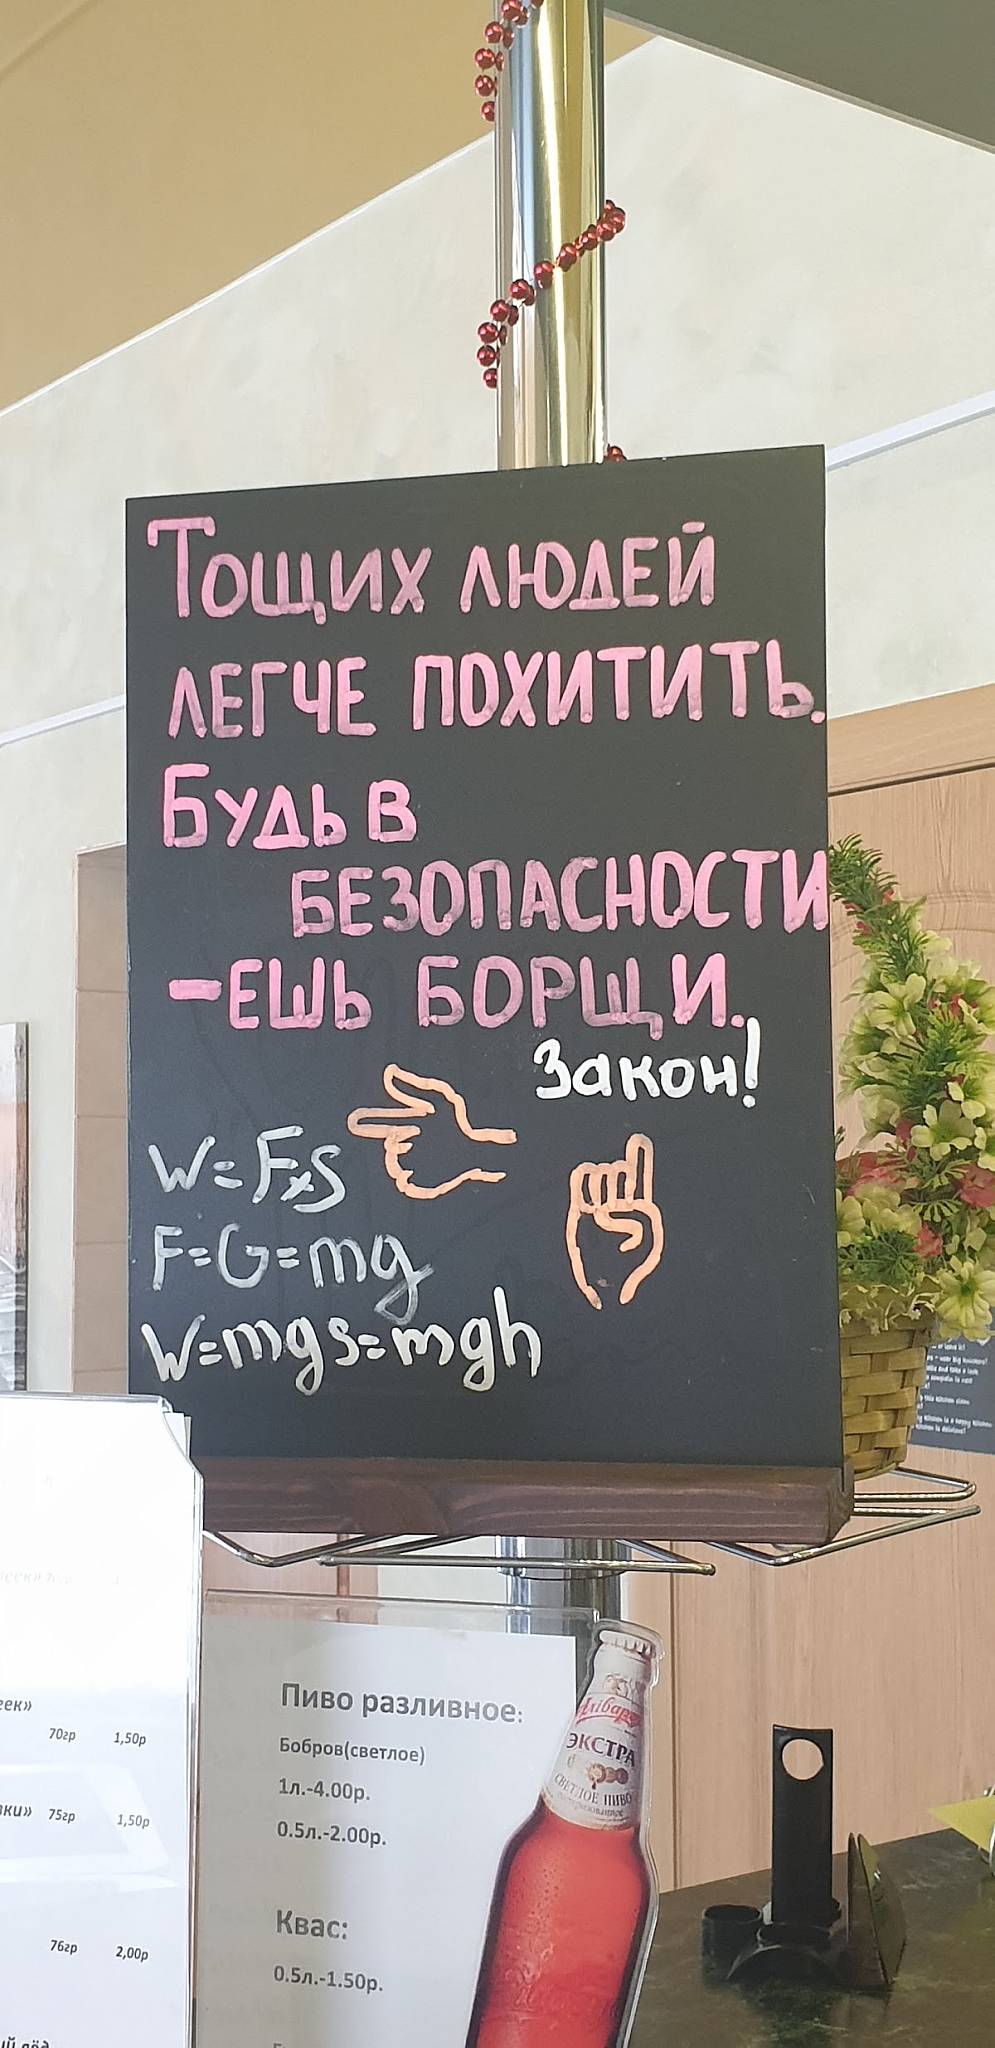 Тощих людей
легче похитить.
Будь в
безопасности
-ешь борщи.
Закон!
W=F×S
F=G=mg
W=mgs=mgh
Пиво разливное:
Бобров(светлое)
1л.-4.00р.
0.5л.-2.00р.
Квас:
0.5л.-1.50р.
ЭКСТРА
СВЕТЛОЕ ПИВО
70гр 1,50р
75гр 1,50р
76гр 2,00р